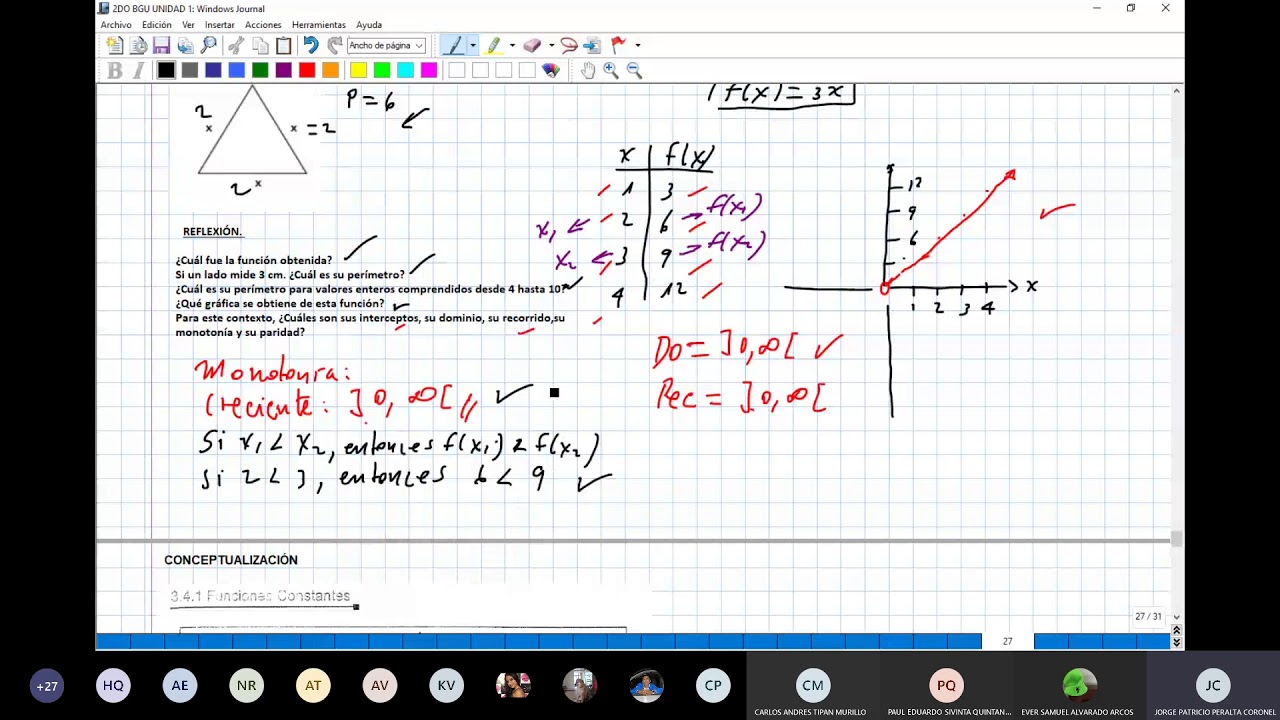 2DO BGU UNIDAD 1: Windows Journal
Archivo Edición Ver Insertar Acciones Herramientas Ayuda
Ancho de página
B I
2
x
x = 2
2 x
P = 6
f(x) = 3x
x f(x)
1 3
2 6 → f(x₁)
x₁ ←
3 9 → f(x₂)
x₂ ←
4 12
12
9
6
1 2 3 4
x
REFLEXIÓN.
¿Cuál fue la función obtenida?
Si un lado mide 3 cm. ¿Cuál es su perímetro?
¿Cuál es su perímetro para valores enteros comprendidos desde 4 hasta 10?
¿Qué gráfica se obtiene de esta función?
Para este contexto, ¿Cuáles son sus interceptos, su dominio, su recorrido,su
monotonía y su paridad?
Do = ]0, ∞[
Rec = ]0, ∞[
Monotonía:
Creciente: ]0, ∞[ //
Si x₁ < x₂, entonces f(x₁) < f(x₂)
Si 2 < 3, entonces 6 < 9
CONCEPTUALIZACIÓN
3.4.1 Funciones Constantes
27 / 31
27
+27 HQ AE NR AT AV KV CP CM PQ JC
CARLOS ANDRES TIPAN MURILLO
PAUL EDUARDO SIVINTA QUINTAN...
EVER SAMUEL ALVARADO ARCOS
JORGE PATRICIO PERALTA CORONEL